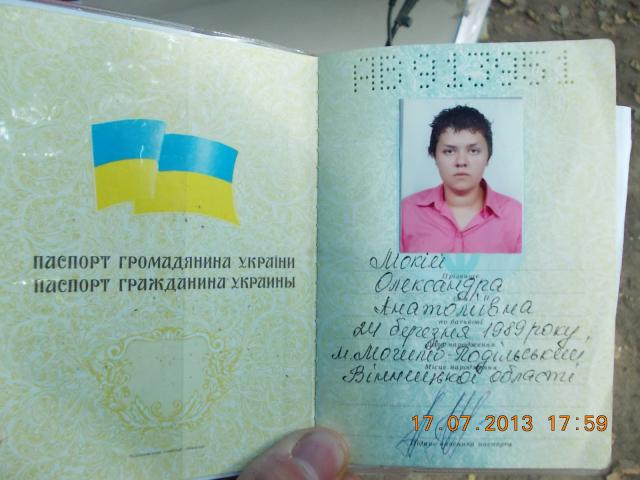 ПАСПОРТ ГРОМАДЯНИНА УКРАЇНИ
ПАСПОРТ ГРАЖДАНИНА УКРАИНЫ
Мокій
Прізвище
Олександра
Ім'я
Анатоліївна
по батькові
24 березня 1989 року
Дата народження
м. Могилів-Подільський
Місце народження
Вінницької області
Підпис власника паспорта
17.07.2013 17:59